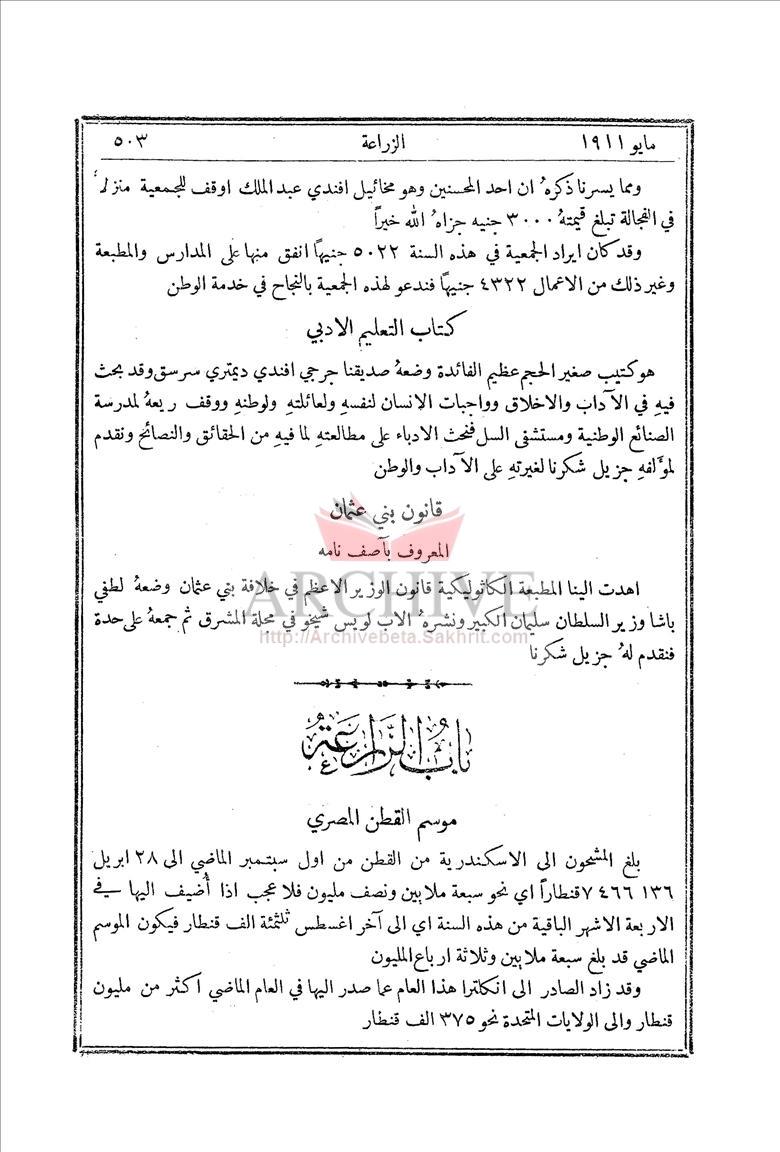 مايو ١٩١١ الزراعة ٥٠٣
ومما يسرنا ذكرهُ ان احد المحسنين وهو مخائيل افندي عبد الملك اوقف للجمعية منزلاً
في الفجالة تبلغ قيمتهُ ٣٠٠٠ جنيه جزاهُ الله خيراً
وقد كان ايراد الجمعية في هذه السنة ٥٠٢٢ جنيهاً انفق منها على المدارس والمطبعة
وغير ذلك من الاعمال ٤٣٢٢ جنيهاً فندعو لهذه الجمعية بالنجاح في خدمة الوطن
كتاب التعليم الادبي
هو كتيب صغير الحجم عظيم الفائدة وضعهُ صديقنا جرجي افندي ديمتري سرسق وقد بحث
فيهِ في الآداب والاخلاق وواجبات الانسان لنفسهِ ولعائلتهِ ولوطنهِ ووقف ريعهُ لمدرسة
الصنائع الوطنية ومستشفى السل فنحث الادباء على مطالعتهِ لما فيهِ من الحقائق والنصائح ونقدم
لمؤلفهِ جزيل شكرنا لغيرتهِ على الآداب والوطن
قانون بني عثمان
المعروف بآصف نامه
اهدت الينا المطبعة الكاثوليكية قانون الوزير الاعظم في خلافة بني عثمان وضعهُ لطفي
باشا وزير السلطان سليمان الكبير ونشرهُ الاب لويس شيخو في مجلة المشرق ثم جمعهُ على حدة
فنقدم لهُ جزيل شكرنا
ARCHIVE
http://Archivebeta.Sakhrit.com
باب الزراعة
موسم القطن المصري
بلغ المشحون الى الاسكندرية من القطن من اول سبتمبر الماضي الى ٢٨ ابريل
١٣٦ ٤٦٦ ٧ قنطاراً اي نحو سبعة ملايين ونصف مليون فلا عجب اذا أضيف اليها في
الاربعة الاشهر الباقية من هذه السنة اي الى آخر اغسطس ثلثمئة الف قنطار فيكون الموسم
الماضي قد بلغ سبعة ملايين وثلاثة ارباع المليون
وقد زاد الصادر الى انكلترا هذا العام عما صدر اليها في العام الماضي اكثر من مليون
قنطار والى الولايات المتحدة نحو ٣٧٥ الف قنطار